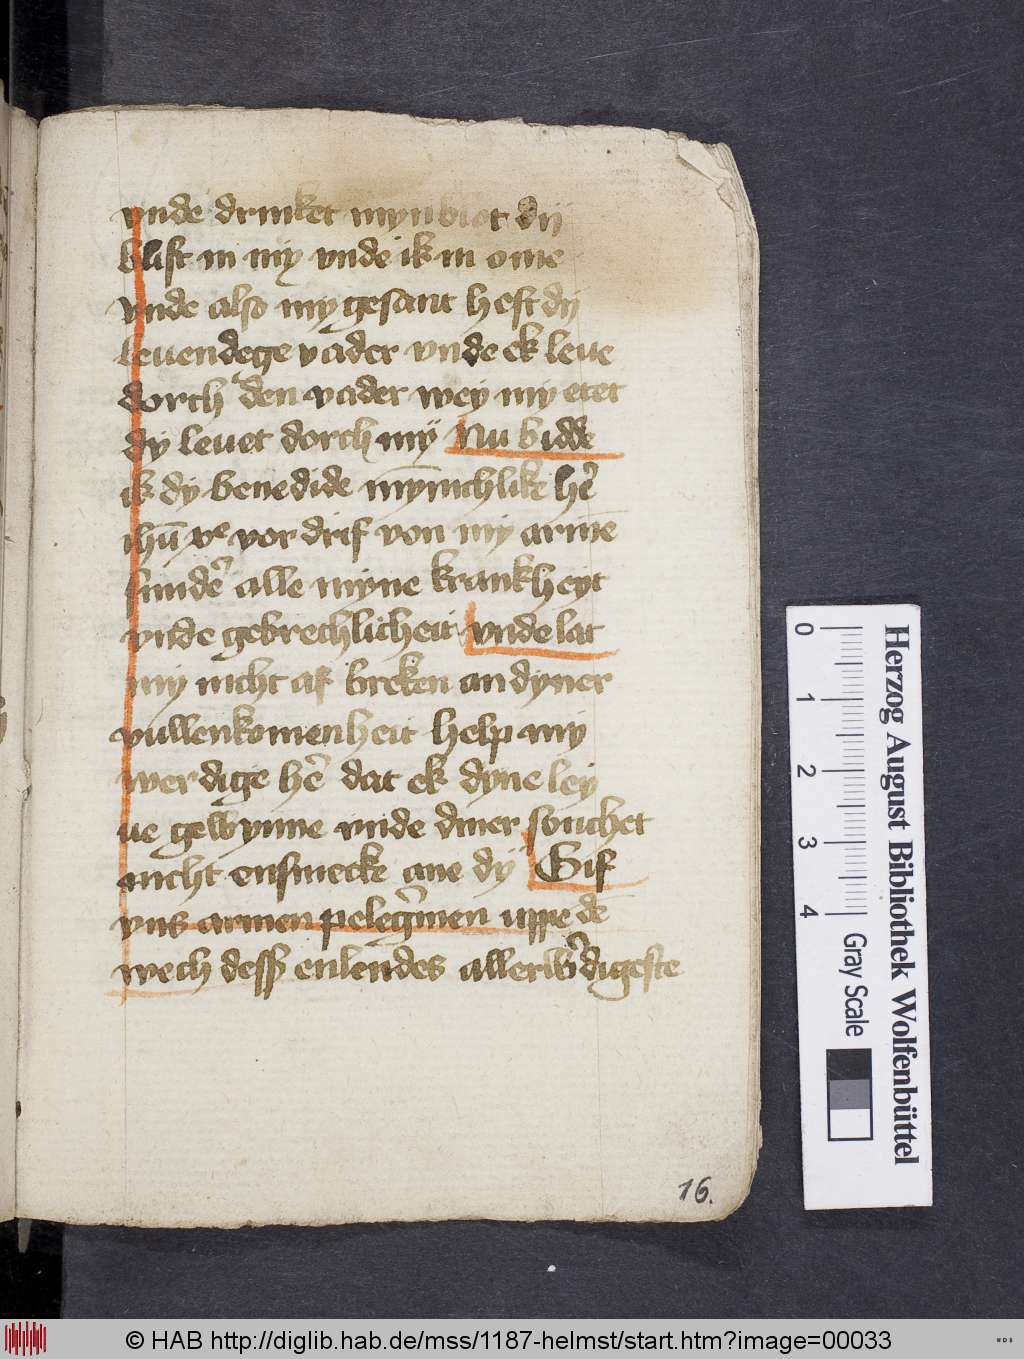 vnde drinket myn blot dy
blift in my vnde ik in ome
vnde also my gesant heft dy
leuendege vader vnde ek leue
dorch den vader wey my etet
dy leuet dorch my Nu bidde
ik dy benedide mȳnichlike hē
ihū xᵉ vor drif von my armē
sundē alle myne krankheyt
vnde gebrechlicheit vnde lat
my nicht af breken an dyner
vullenkomenheit help my
werdige hē dat ek dyne ley
ue gewynne vnde diner souchet
nicht ensmecke ane dy Gif
vns armen pelegmen uppe dē
wech dess enlendes allerwdigeste
16.
Herzog August Bibliothek Wolfenbüttel
0 1 2 3 4
Gray Scale
© HAB http://diglib.hab.de/mss/1187-helmst/start.htm?image=00033